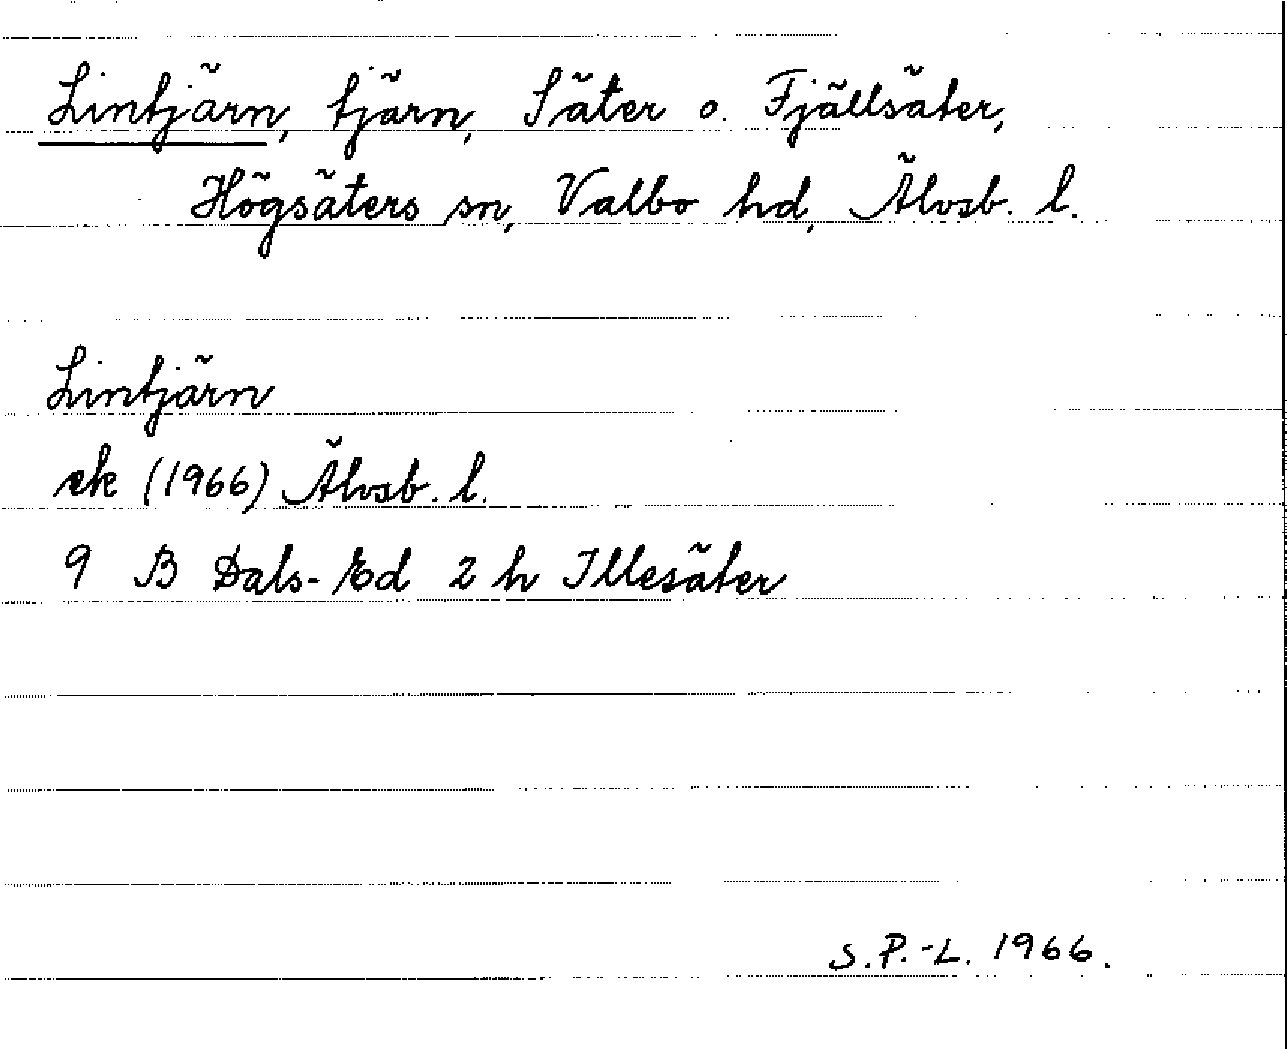 Lintjärn, tjärn, Säter o. Fjällsäter,
Högsäters sn, Valbo hd, Älvsb. l.
Lintjärn
ek (1966) Älvsb. l.
9 B Dals-Ed 2 h Illesäter
S.P.-L. 1966.